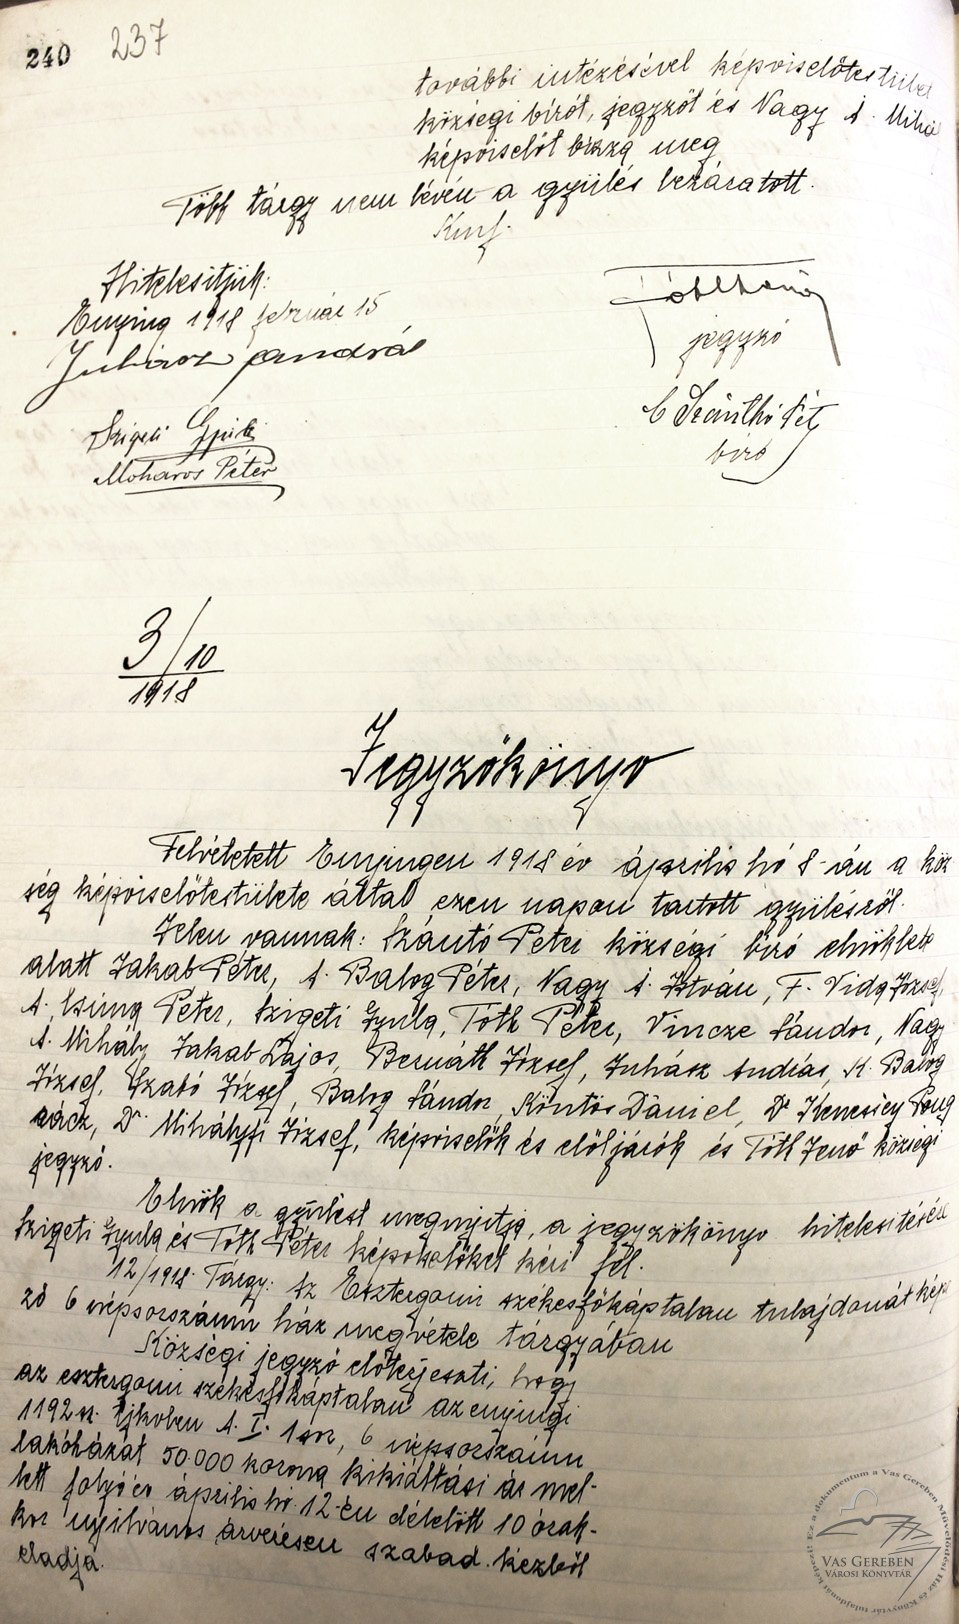 240 237
további intézésével képviselőtestület
községi bírót, jegyzőt és Nagy A. Mihá
képviselőt bízza meg
Több tárgy nem lévén a gyülés bezáratott.
Kmf.
Hitelesitjük:
Enying 1918 február 15
Juhász András
Szigeti Gyula
Moharos Péter
Tóth Jenő
jegyző
C Szánthó Pét
bíró
3/10
1918
Jegyzőkönyv
Felvétetett Enyingen 1918 év április hó 8-án a köz
ség képviselőtestülete által ezen napon tartott gyülésről.
Jelen vannak: Szántó Péter községi bíró elnöklete
alatt Jakab Péter, A. Balog Péter, Nagy A. István, F. Vida József,
A. Péter, Szigeti Gyula, Tóth Péter, Vincze Sándor, Nagy
A. Mihály, Jakab Lajos, Bernáth József, Juhász András, K. Balog
József, Szabó József, Balog Sándor, Köntös Dániel, Dr Kenessey Pong
rácz, Dr. Mihályfi József, képviselők és elöljárók és Tóth Jenő községi
jegyző.
Elnök a gyülést megnyitja, a jegyzőkönyv hitelesitésére
Szigeti Gyula és Tóth Péter képviselőket kéri fel.
12/1918. Tárgy: Az Esztergomi székesfőkáptalan tulajdonát képe
ző 6 népsorszámu ház megvétele tárgyában
Községi jegyző előterjeszti, hogy
az esztergomi székesfőkáptalan az enyingi
1192 sz. tjkvben A. I. 1 sor, 6 népsorszámu
lakóházát 50.000 korona kikiáltási ár mel-
lett folyó év április hó 12-én délelőtt 10 órak-
kor nyilvános árverésen szabad kézből
eladja.
Ez a dokumentum a Vas Gereben Művelődési Ház és Könyvtár tulajdonát képezi!
VAS GEREBEN
VÁROSI KÖNYVTÁR